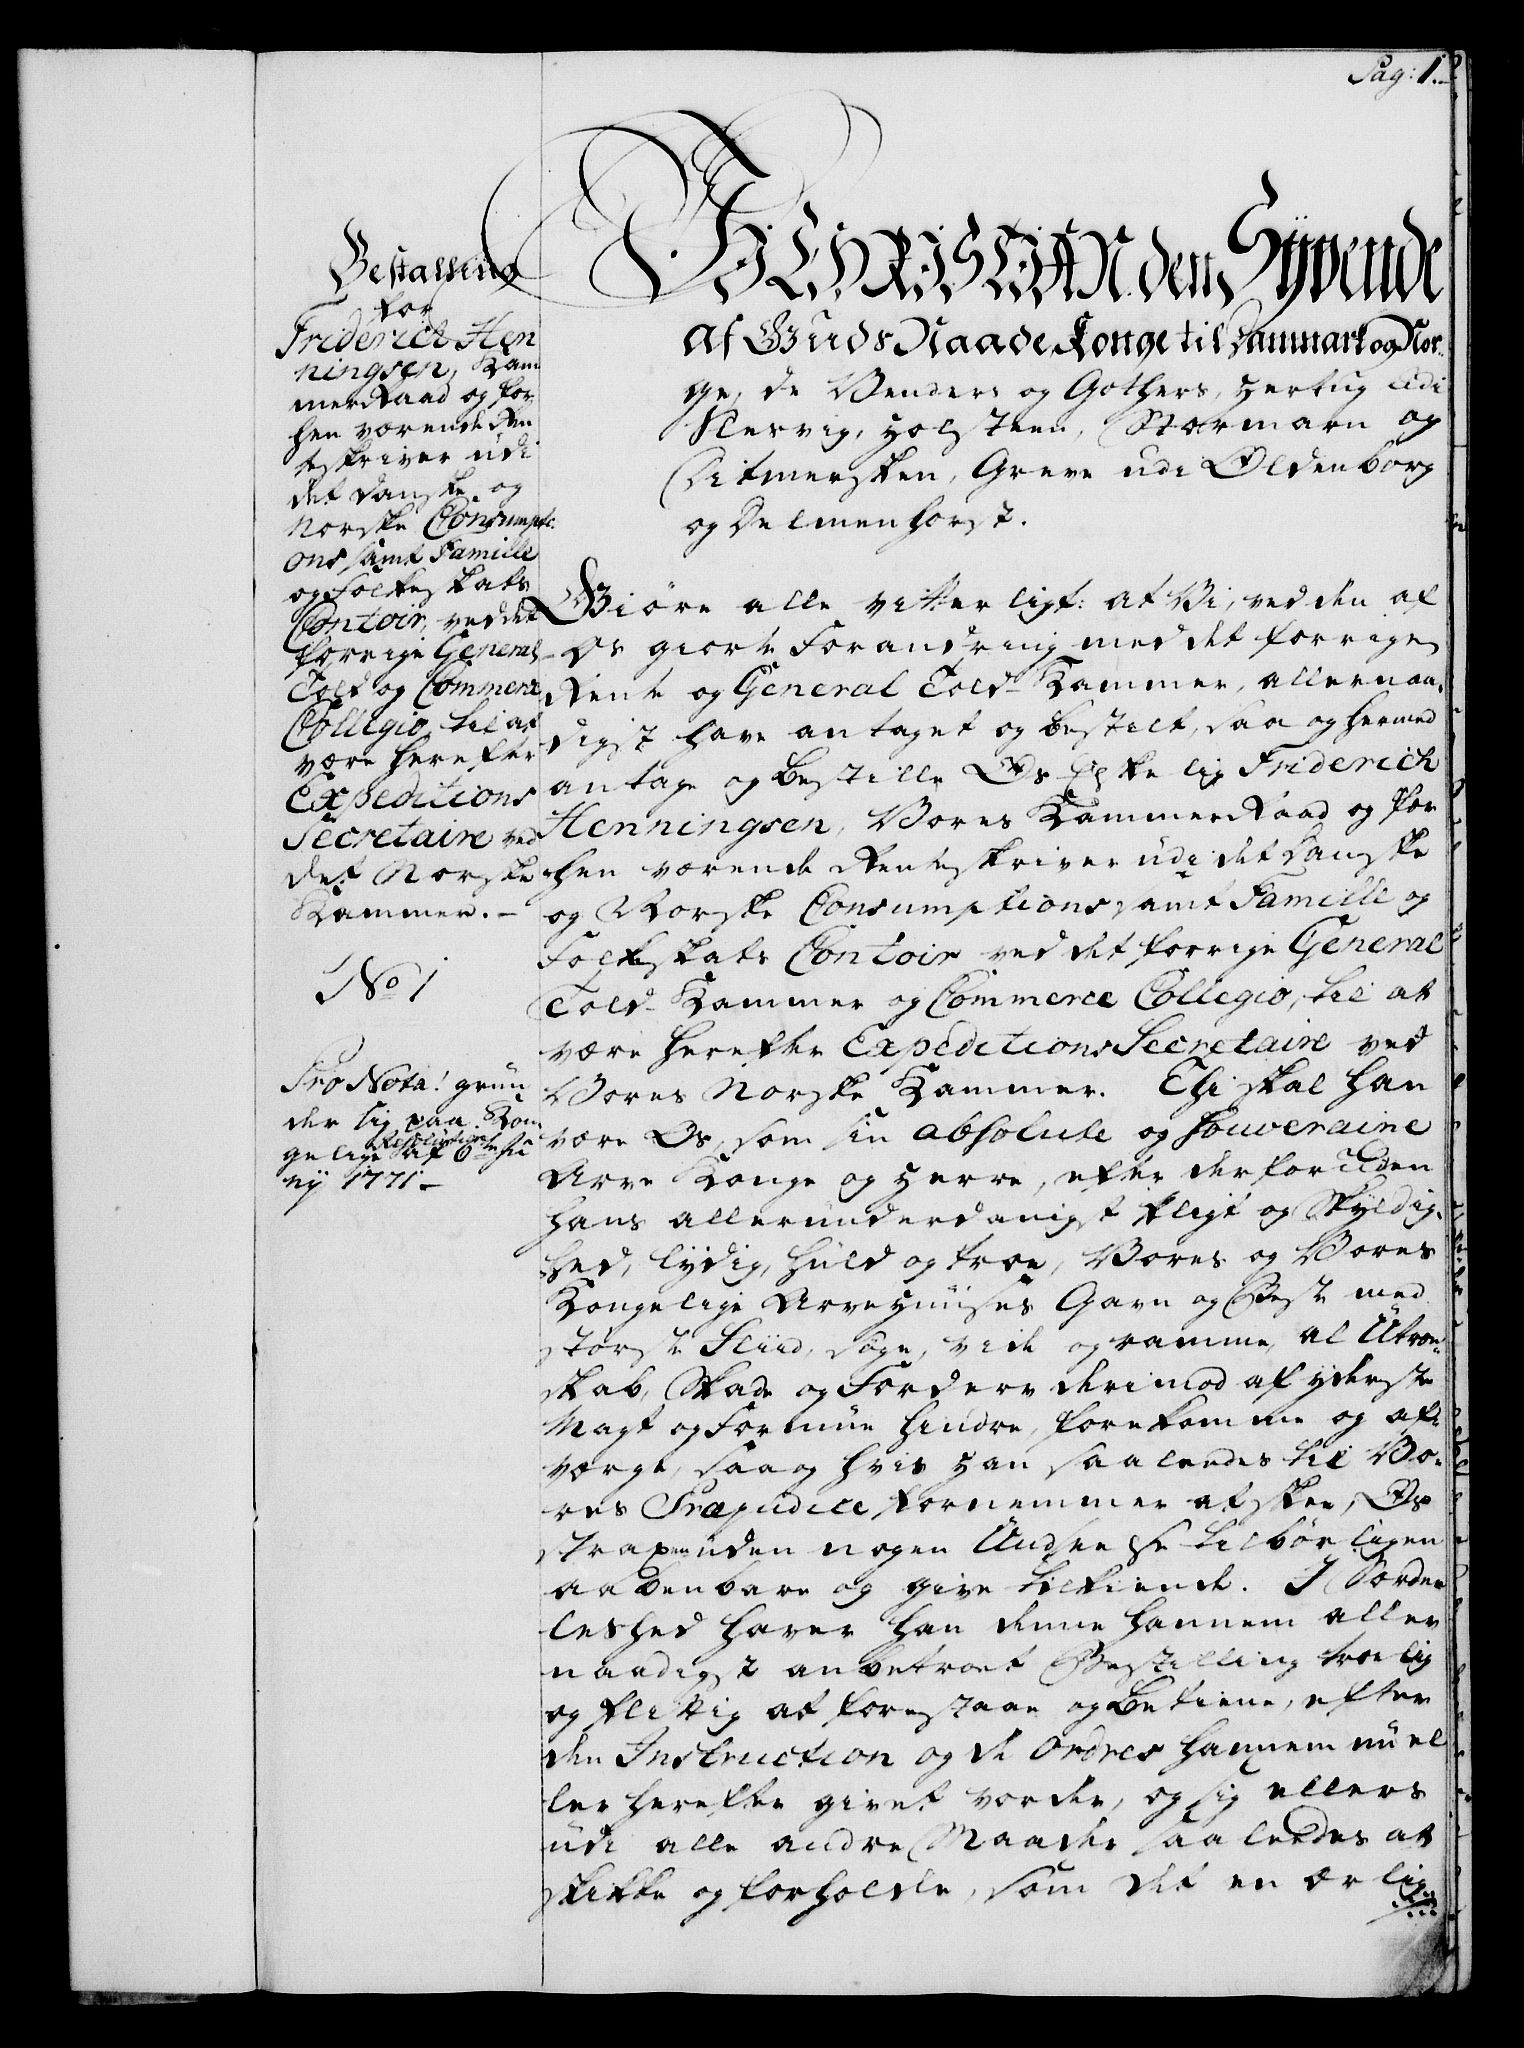 Pag: 1.
Bestalling
for
Friderich Hen
ningsen, Kam
merRaad og for
hen værende Ren
teskriver udi
det Danske og
Norske Consumpti-
ons samt Familie
og Folkeskats
Contoir, ved det
forrige General
Told og Commerce
Collegio, til at
være herefter
Expeditions
Secretaire ved
det Norske
Kammer. -
No 1
Pro Nota! grün
der sig paa Kon
gelige Resolution af 6te Ju
nÿ 1771 -
Vi CHRISTIAN den Syvende
af Guds Naade Konge til Danmark og Nor-
ge, de Venders og Gothers, Hertug udi
Slesvig, Holsteen, Stormarn og
Ditmersken, Greve udi Oldenborg
og Delmenhorst.
Giöre alle vitterligt: at Vi, ved den af
Os giorte Forandring med det forrige
Rente og General Told-Kammer, allernaa-
digst have antaget og bestilt, saa og hermed
antage og bestille Os Elskelig Friderich
Henningsen, Vores KammerRaad og for
hen værende Renteskriver udi det Danske
og Norske Consumptions samt Familie og
Folkskats Contoir ved det forrige General
Told-Kammer og Commerce Collegio, til at
være herefter Expeditions Secretaire ved
Vores Norske Kammer. Thi skal han
være Os, som sin absolute og souveraine
Arve Konge og Herre, efter derforuden
hans allerunderdanigst Pligt og Skyldig-
hed, lydig, huld og troe, Vores og Vores
Kongelige Arvehuuses Gavn og Beste med
störste Fliid, söge, vide og ramme, al Utroe-
skab, Skade og Forderv derimod af yderste
Magt og Formue hindre, forekomme og af-
værge, saa og hvis han saaledes til Vo-
res Præjudice fornemmer at skee, Os
strax uden nogen Undseelse tilbörligen
aabenbare og give tilkiende. I Særde
leshed haver han denne hannem aller
naadigst anbetroet Bestilling troelig
og flittig at forestaae og betiene, efter
den Instruction og de Ordres hannem nu el
ler herefter givet vorder, og sig ellers
udi alle andre Maader saaledes at
skikke og forholde, som det en ærlig